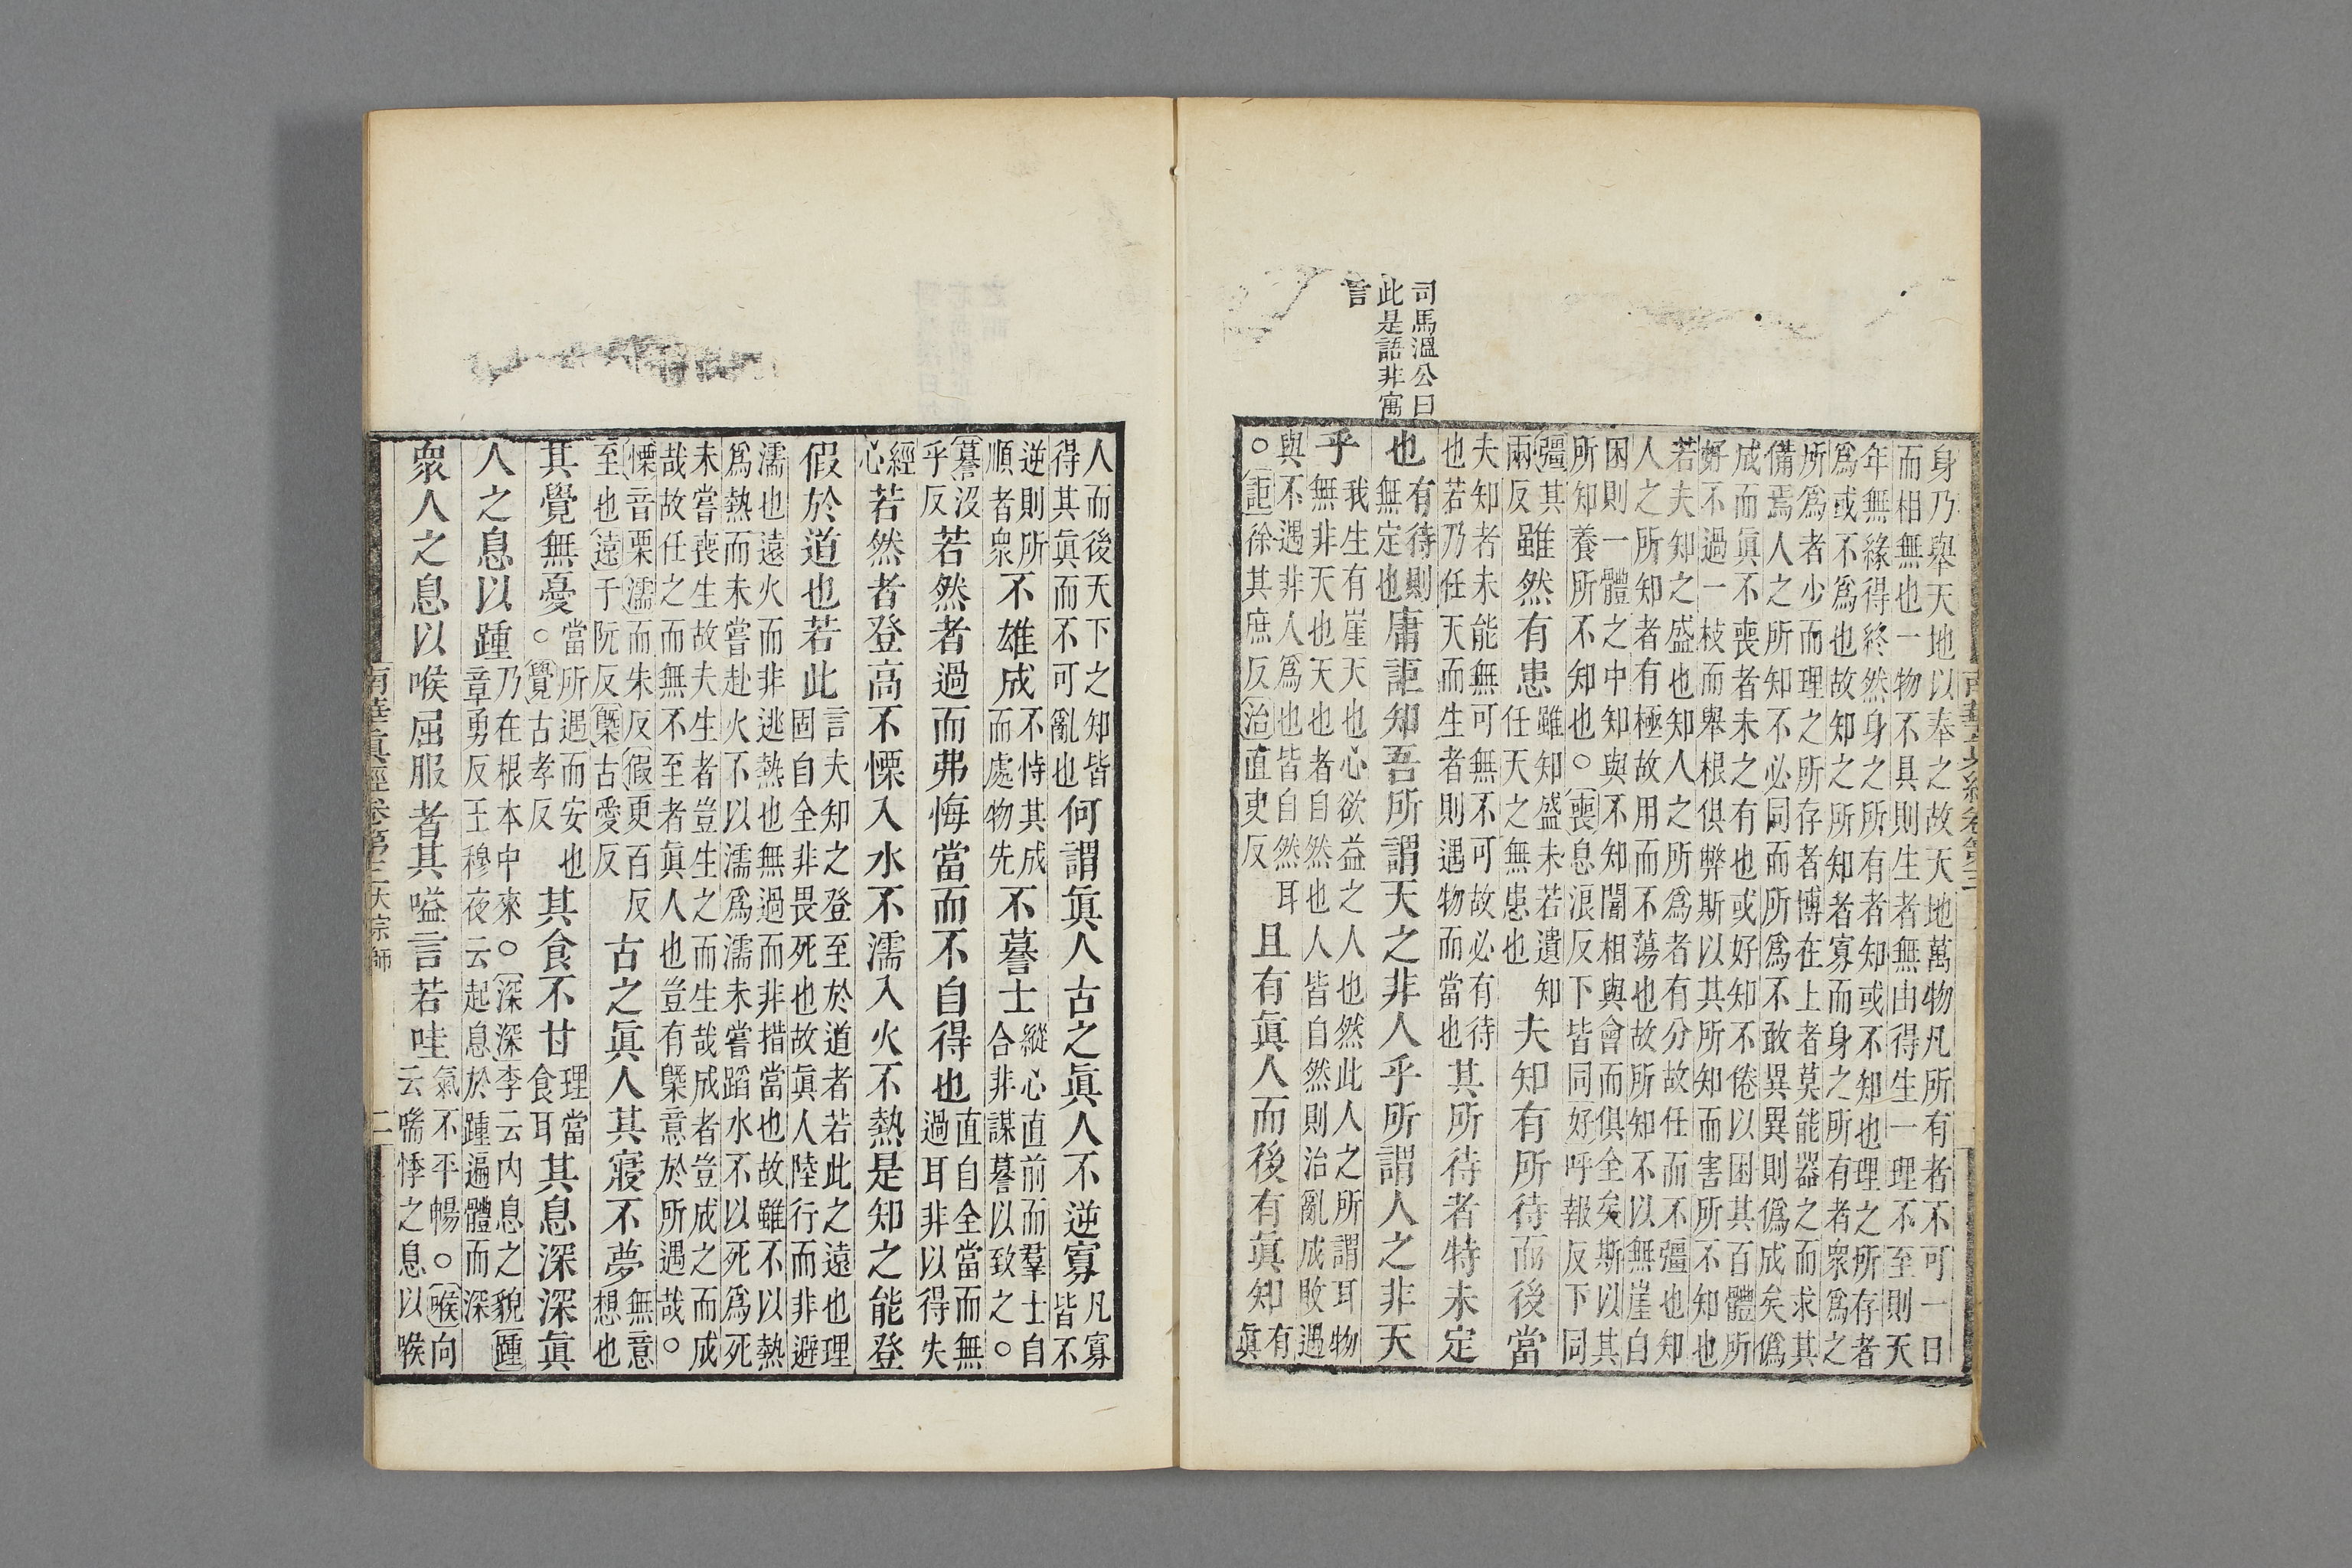 司馬溫公曰
此是語非寓
言
身乃舉天地以奉之故天地萬物凡所有者不可一日
而相無也一物不具則生者無由得生一理不至則天
年無緣得終然身之所有者知或不知也理之所存者
爲或不爲也故知之所知者寡而身之所有者衆爲之
所爲者少而理之所存者博在上者莫能器之而求其
備焉人之所知不必同而所爲不敢異異則僞成矣僞
成而眞不喪者未之有也或好知不倦以困其百體所
好不過一枝而舉根俱弊斯以其所知而害所不知也
若夫知之盛也知人之所爲者有分故任而不彊也知
人之所知者有極故用而不蕩也故所知不以無崖自
困則一體之中知與不知闇相與會而俱全矣斯以其
所知養所不知也○喪息浪反下皆同好呼報反下同
彊其
兩反
雖然有患
雖知盛未若遺知
任天之無患也
夫知有所待而後當
夫知者未能無可無不可故必有待
也若乃任天而生者則遇物而當也
其所待者特未定
也
有待則
無定也
庸詎知吾所謂天之非人乎所謂人之非天
乎
我生有崖天也心欲益之人也然此人之所謂耳物
無非天也天也者自然也人皆自然則治亂成敗遇
與不遇非人爲也皆自然耳
○詎徐其庶反治直吏反
且有眞人而後有眞知
有
眞
人而後天下之知皆
得其眞而不可亂也
何謂眞人古之眞人不逆寡
凡寡
皆不
逆則所
順者衆
不雄成
不恃其成
而處物先
不謩士
縱心直前而羣士自
合非謀謩以致之○
謩沒
乎反
若然者過而弗悔當而不自得也
直自全當而無
過耳非以得失
經
心
若然者登高不慄入水不濡入火不熱是知之能登
假於道也若此
言夫知之登至於道者若此之遠也理
固自全非畏死也故眞人陸行而非避
濡也遠火而非逃熱也無過而非措當也故雖不以熱
爲熱而未嘗赴火不以濡爲濡未嘗蹈水不以死爲死
未嘗喪生故夫生者豈生之而生哉成者豈成之而成
哉故任之而無不至者眞人也豈有槩意於所遇哉○
慄音栗濡而朱反假更百反
至也遠于阮反槩古愛反
古之眞人其寢不夢
無意
想也
其覺無憂
當所遇而安也
○覺古孝反
其食不甘
理當
食耳
其息深深眞
人之息以踵
乃在根本中來○深深李云内息之貌踵
章勇反王穆夜云起息於踵遍體而深
衆人之息以喉屈服者其嗌言若哇
氣不平暢○喉向
云喘悸之息以喉
南華眞經卷第三大宗師
二